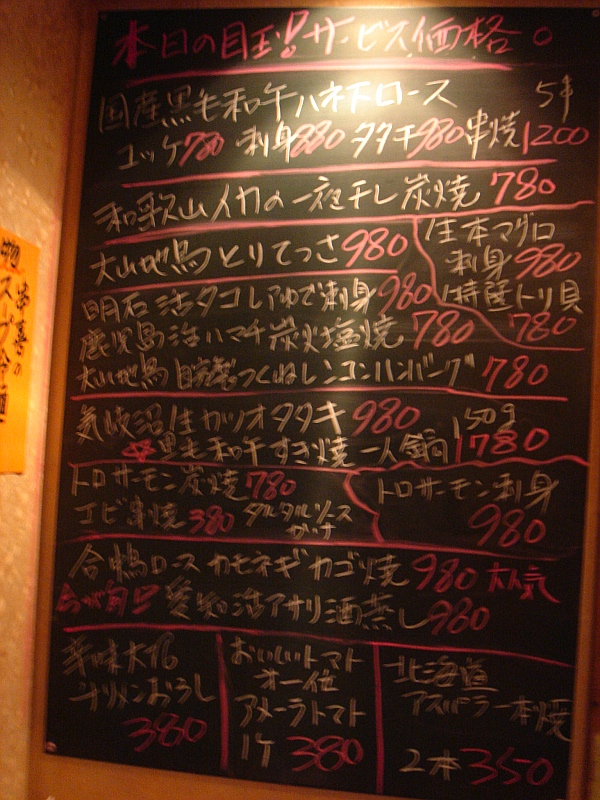 本日の目玉!サービス価格。
国産黒毛和牛ハネ下ロース 5本
ユッケ780 刺身880 タタキ980 串焼1200
和歌山イカの一夜干し炭焼 780
大山地鳥とりてっさ980
生本マグロ
刺身980
特選トリ貝
780
明石活タコレアゆで刺身980
鹿児島活ハマチ炭火塩焼780
大山地鳥自家製つくねレンコンハンバーグ780
気岐沼生カツオタタキ980
黒毛和牛すき焼一人鍋1780
150g
トロサーモン炭焼780
エビ串焼380 タルタルソース
トロサーモン刺身
980
合鴨ロースカモネギカゴ焼980 大人気
今が旬!!愛知活アサリ酒蒸し980
辛味大根
チリメンおろし
380
おいしいトマト
オー位
アメーラトマト
1ケ380
北海道
アスパラ一本焼
2本350
物
スープ冷麺